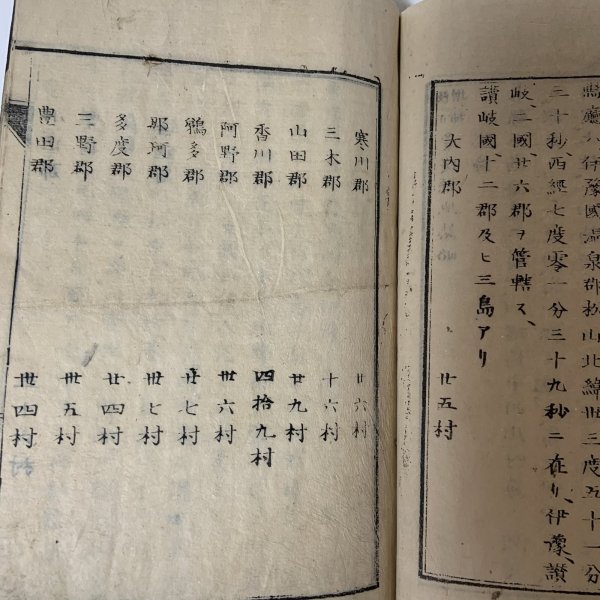 縣廳ハ伊豫國温泉郡松山北緯卅三度五十一分
三十秒、西經七度零一分三十九秒ニ在リ、伊豫、讃
岐、二國廿六郡ヲ管轄ス、
讃岐國、十二郡及ヒ三島アリ
大内郡 廿五村
寒川郡 廿六村
三木郡 十六村
山田郡 廿九村
香川郡 四拾九村
阿野郡 卅六村
鵜多郡 廿七村
那珂郡 卅七村
多度郡 廿四村
三野郡 卅五村
豊田郡 卅四村